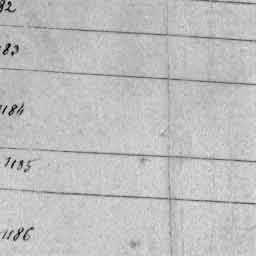 82
183
1184
1185
1186